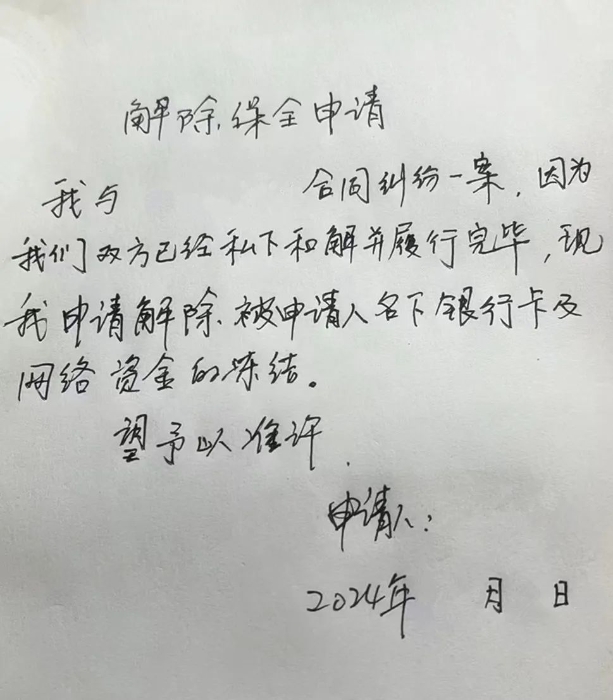 解除保全申请
我与 合同纠纷一案，因为
我们双方已经私下和解并履行完毕，现
我申请解除被申请人名下银行卡及
网络资金的冻结。
望予以准许.
申请人：
2024年 月 日